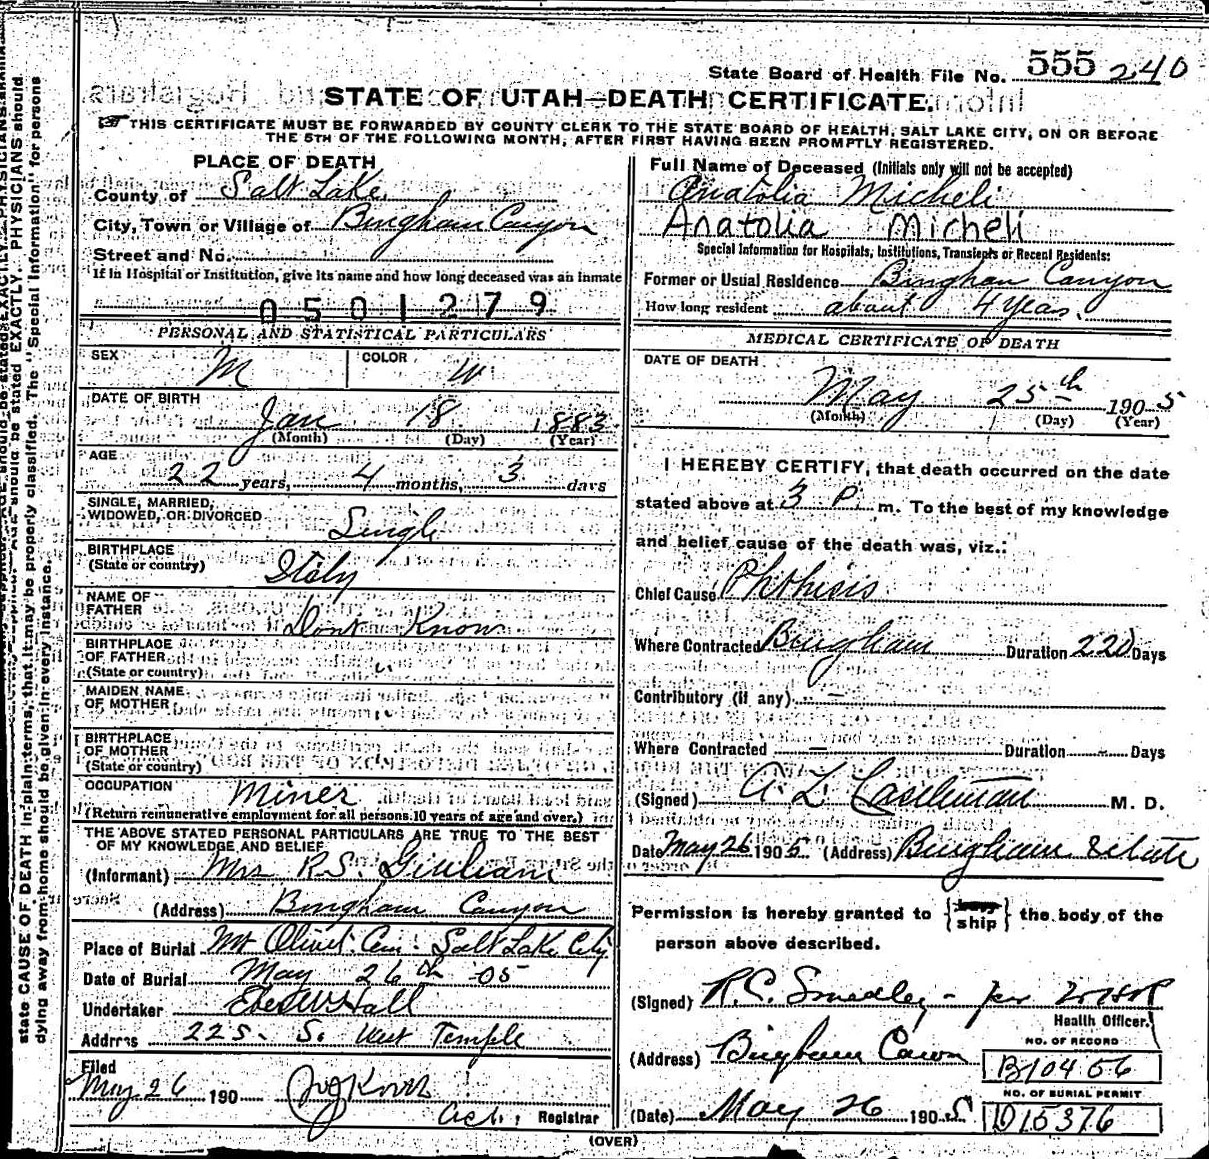 State Board of Health File No. 555 240
STATE OF UTAH—DEATH CERTIFICATE.
THIS CERTIFICATE MUST BE FORWARDED BY COUNTY CLERK TO THE STATE BOARD OF HEALTH, SALT LAKE CITY, ON OR BEFORE
THE 5TH OF THE FOLLOWING MONTH, AFTER FIRST HAVING BEEN PROMPTLY REGISTERED.
PLACE OF DEATH
County of Salt Lake
City, Town or Village of Bingham Canyon
Street and No.
If in Hospital or Institution, give its name and how long deceased was an inmate
0501279
PERSONAL AND STATISTICAL PARTICULARS
SEX M COLOR W
DATE OF BIRTH
Jan 18 1883
(Month) (Day) (Year)
AGE
22 years, 4 months, 3 days
SINGLE, MARRIED,
WIDOWED, OR DIVORCED Single
BIRTHPLACE
(State or country) Italy
NAME OF
FATHER Dont Know
BIRTHPLACE
OF FATHER
(State or country) "
MAIDEN NAME
OF MOTHER
BIRTHPLACE
OF MOTHER
(State or country)
OCCUPATION Miner
(Return remunerative employment for all persons 10 years of age and over.)
THE ABOVE STATED PERSONAL PARTICULARS ARE TRUE TO THE BEST
OF MY KNOWLEDGE AND BELIEF
(Informant) Mrs R.S. Giuliani
(Address) Bingham Canyon
Place of Burial Mt Olivet Cem. Salt Lake City
Date of Burial May 26th '05
Undertaker Eber W Hall
Address 225 S. West Temple
Filed
May 26 190
Act. Registrar
Full Name of Deceased (Initials only will not be accepted)
Anatolia Micheli
Anatolia Micheli
Special Information for Hospitals, Institutions, Transients or Recent Residents:
Former or Usual Residence Bingham Canyon
How long resident about 4 years.
MEDICAL CERTIFICATE OF DEATH
DATE OF DEATH
May 25th 1905
(Month) (Day) (Year)
I HEREBY CERTIFY, that death occurred on the date
stated above at 3 P. m. To the best of my knowledge
and belief cause of the death was, viz.:
Chief Cause Phthisis
Where Contracted Bingham Duration 220 Days
Contributory (if any) —
Where Contracted — Duration - Days
(Signed) A. L. Castleman M. D.
Date May 26 1905 (Address) Bingham Utah
Permission is hereby granted to {bury ship} the body of the
person above described.
(Signed) R.C. Smedley - per
Health Officer.
(Address) Bingham Canon
NO. OF RECORD
B10456
NO. OF BURIAL PERMIT
D15376
(Date) May 26 1905
(OVER)
state CAUSE OF DEATH in plain terms, that it may be properly classified. The "Special Information" for persons
dying away from home should be given in every instance.